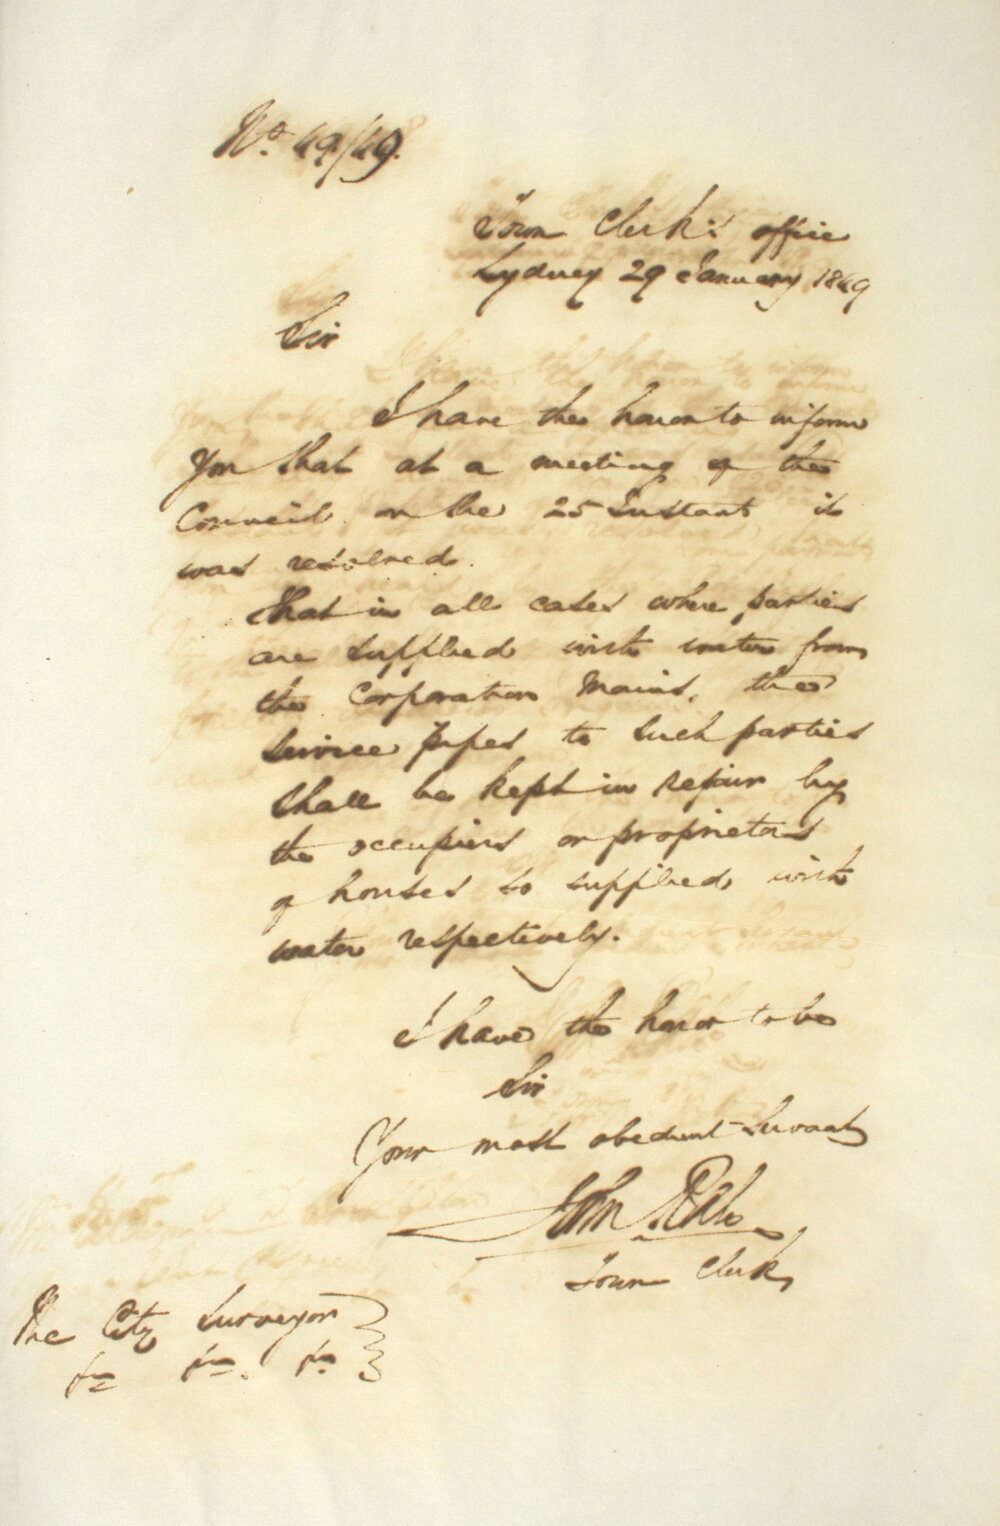 No. 49/49.
Town Clerk's office
Sydney 29 January 1849
Sir
I have the honor to inform
You that at a meeting of the
Council on the 25 Instant it
was resolved.
That in all cases where parties
are supplied with water from
the Corporation Mains, the
Service Pipes to such parties
shall be kept in repair by
the occupiers or proprietors
of houses so supplied with
water respectively.
I have the honor to be
Sir
Your most obedient Servant
John
Town Clerk
The City Surveyor